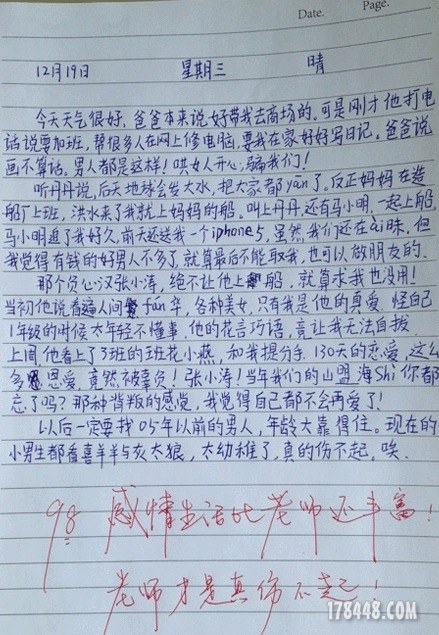 Date.
Page.
12月19日 星期三 晴
今天天气很好,爸爸本来说好带我去商场的。可是刚才他打电
话说要加班,帮很多人在网上修电脑,要我在家好好写日记。爸爸说
画不算话。男人都是这样!哄女人开心,骗我们!
听丹丹说,后天地球会发大水,把大家都yān了。反正妈妈在造
船厂上班,洪水来了我就上妈妈的船。叫上丹丹,还有马小明,一起上船,
马小明追了我好久,前天还送我一个iphone5,虽然我们还在ài昧,但
我觉得有钱的好男人不多了,就算最后不能取我,也可以做朋友的.
那个负心汉张小涛,绝不让他上船,就算求我也没用!
当初他说看遍人间fán华,各种美女,只有我是他的真爱,怪自己
1年级的时候太年轻不懂事,他的花言巧语,竟让我无法自拔
上周他看上了3班的班花小燕,和我提分手,130天的恋爱,这么
多恩爱,竟然被辜负!张小涛!当年我们的山盟海Shì你都
忘了吗?那种背叛的感觉,我觉得自己都不会再爱了!
以后一定要找05年以前的男人,年龄大靠得住。现在的
小男生都看喜羊羊与灰太狼,太幼稚了,真的伤不起,唉.
98 感情生活比老师还丰富!
老师才是真伤不起!
178448.COM